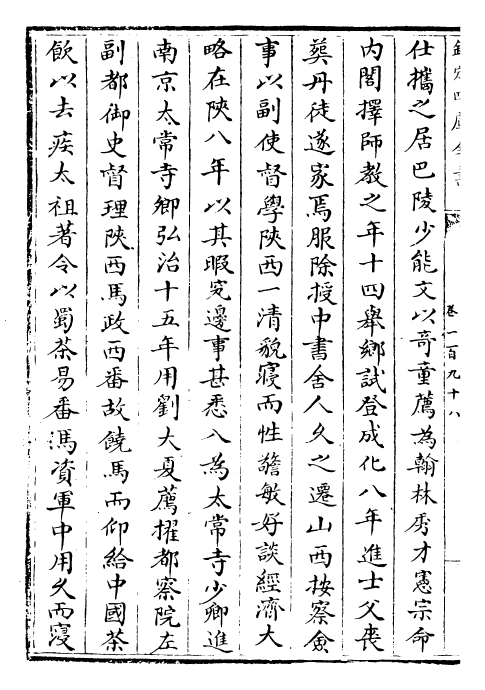 欽定四庫全書
卷一百九十八
仕攜之居巴陵少能文以奇童薦為翰林秀才憲宗命
内閣擇師教之年十四舉鄉試登成化八年進士父喪
葬丹徒遂家焉服除授中書舍人久之遷山西按察僉
事以副使督學陝西一清貌寢而性警敏好談經濟大
略在陝八年以其暇究邊事甚悉入為太常寺少卿進
南京太常寺卿弘治十五年用劉大夏薦擢都察院左
副都御史督理陝西馬政西番故饒馬而仰給中國茶
飲以去疾太祖著令以蜀茶易番馮資軍中用久而寖